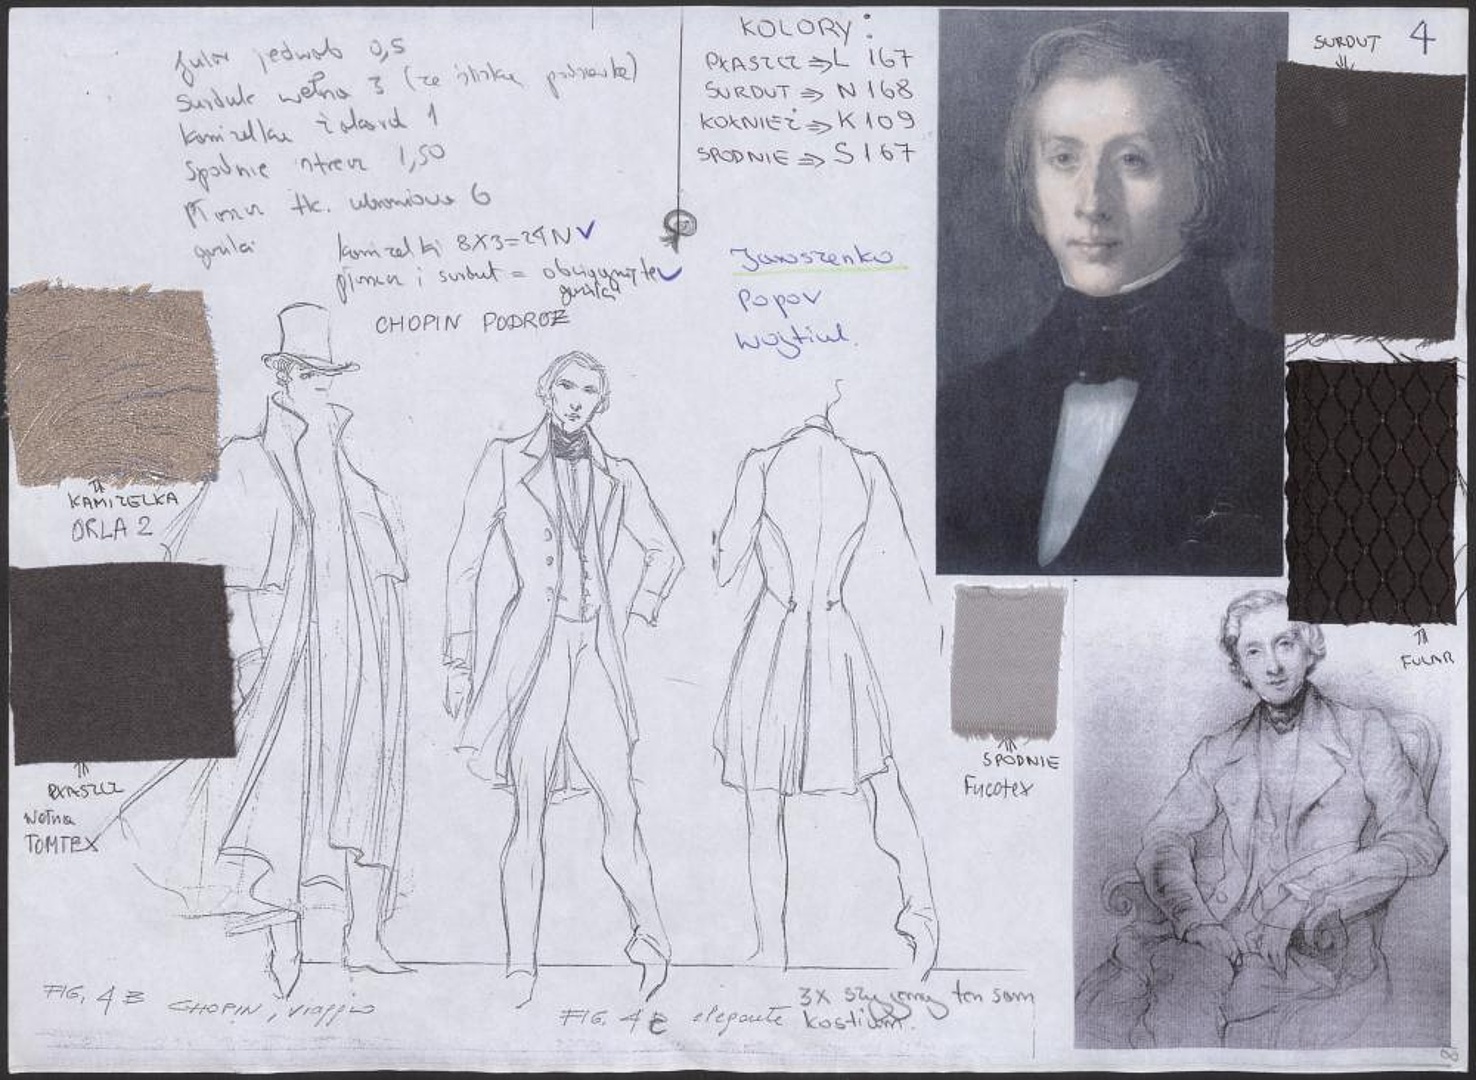 fular jedwab 0,5
Surdut wełna 3 (ze
kamizelka żakard 1
Spodnie strez 1,50
tk. ubraniowa 6
guziki
kamizelki 8X3=24 N ✓
i surdut = obciągnięte ✓
guziki
CHOPIN PODRÓŻ
KOLORY:
PŁASZCZ ⇒ L 167
SURDUT ⇒ N 168
KOŁNIEŻ ⇒ K 109
SPODNIE ⇒ S 167
Jaroszenko
Popov
Wojtiul.
SURDUT
4
KAMIZELKA
ORLA 2
PŁASZCZ
Wełna
TOMTEX
FULAR
SPODNIE
Fucotex
FIG. 4 B CHOPIN, viaggio
FIG. 4 C elegante
3X szyjemy ten sam
kostium.